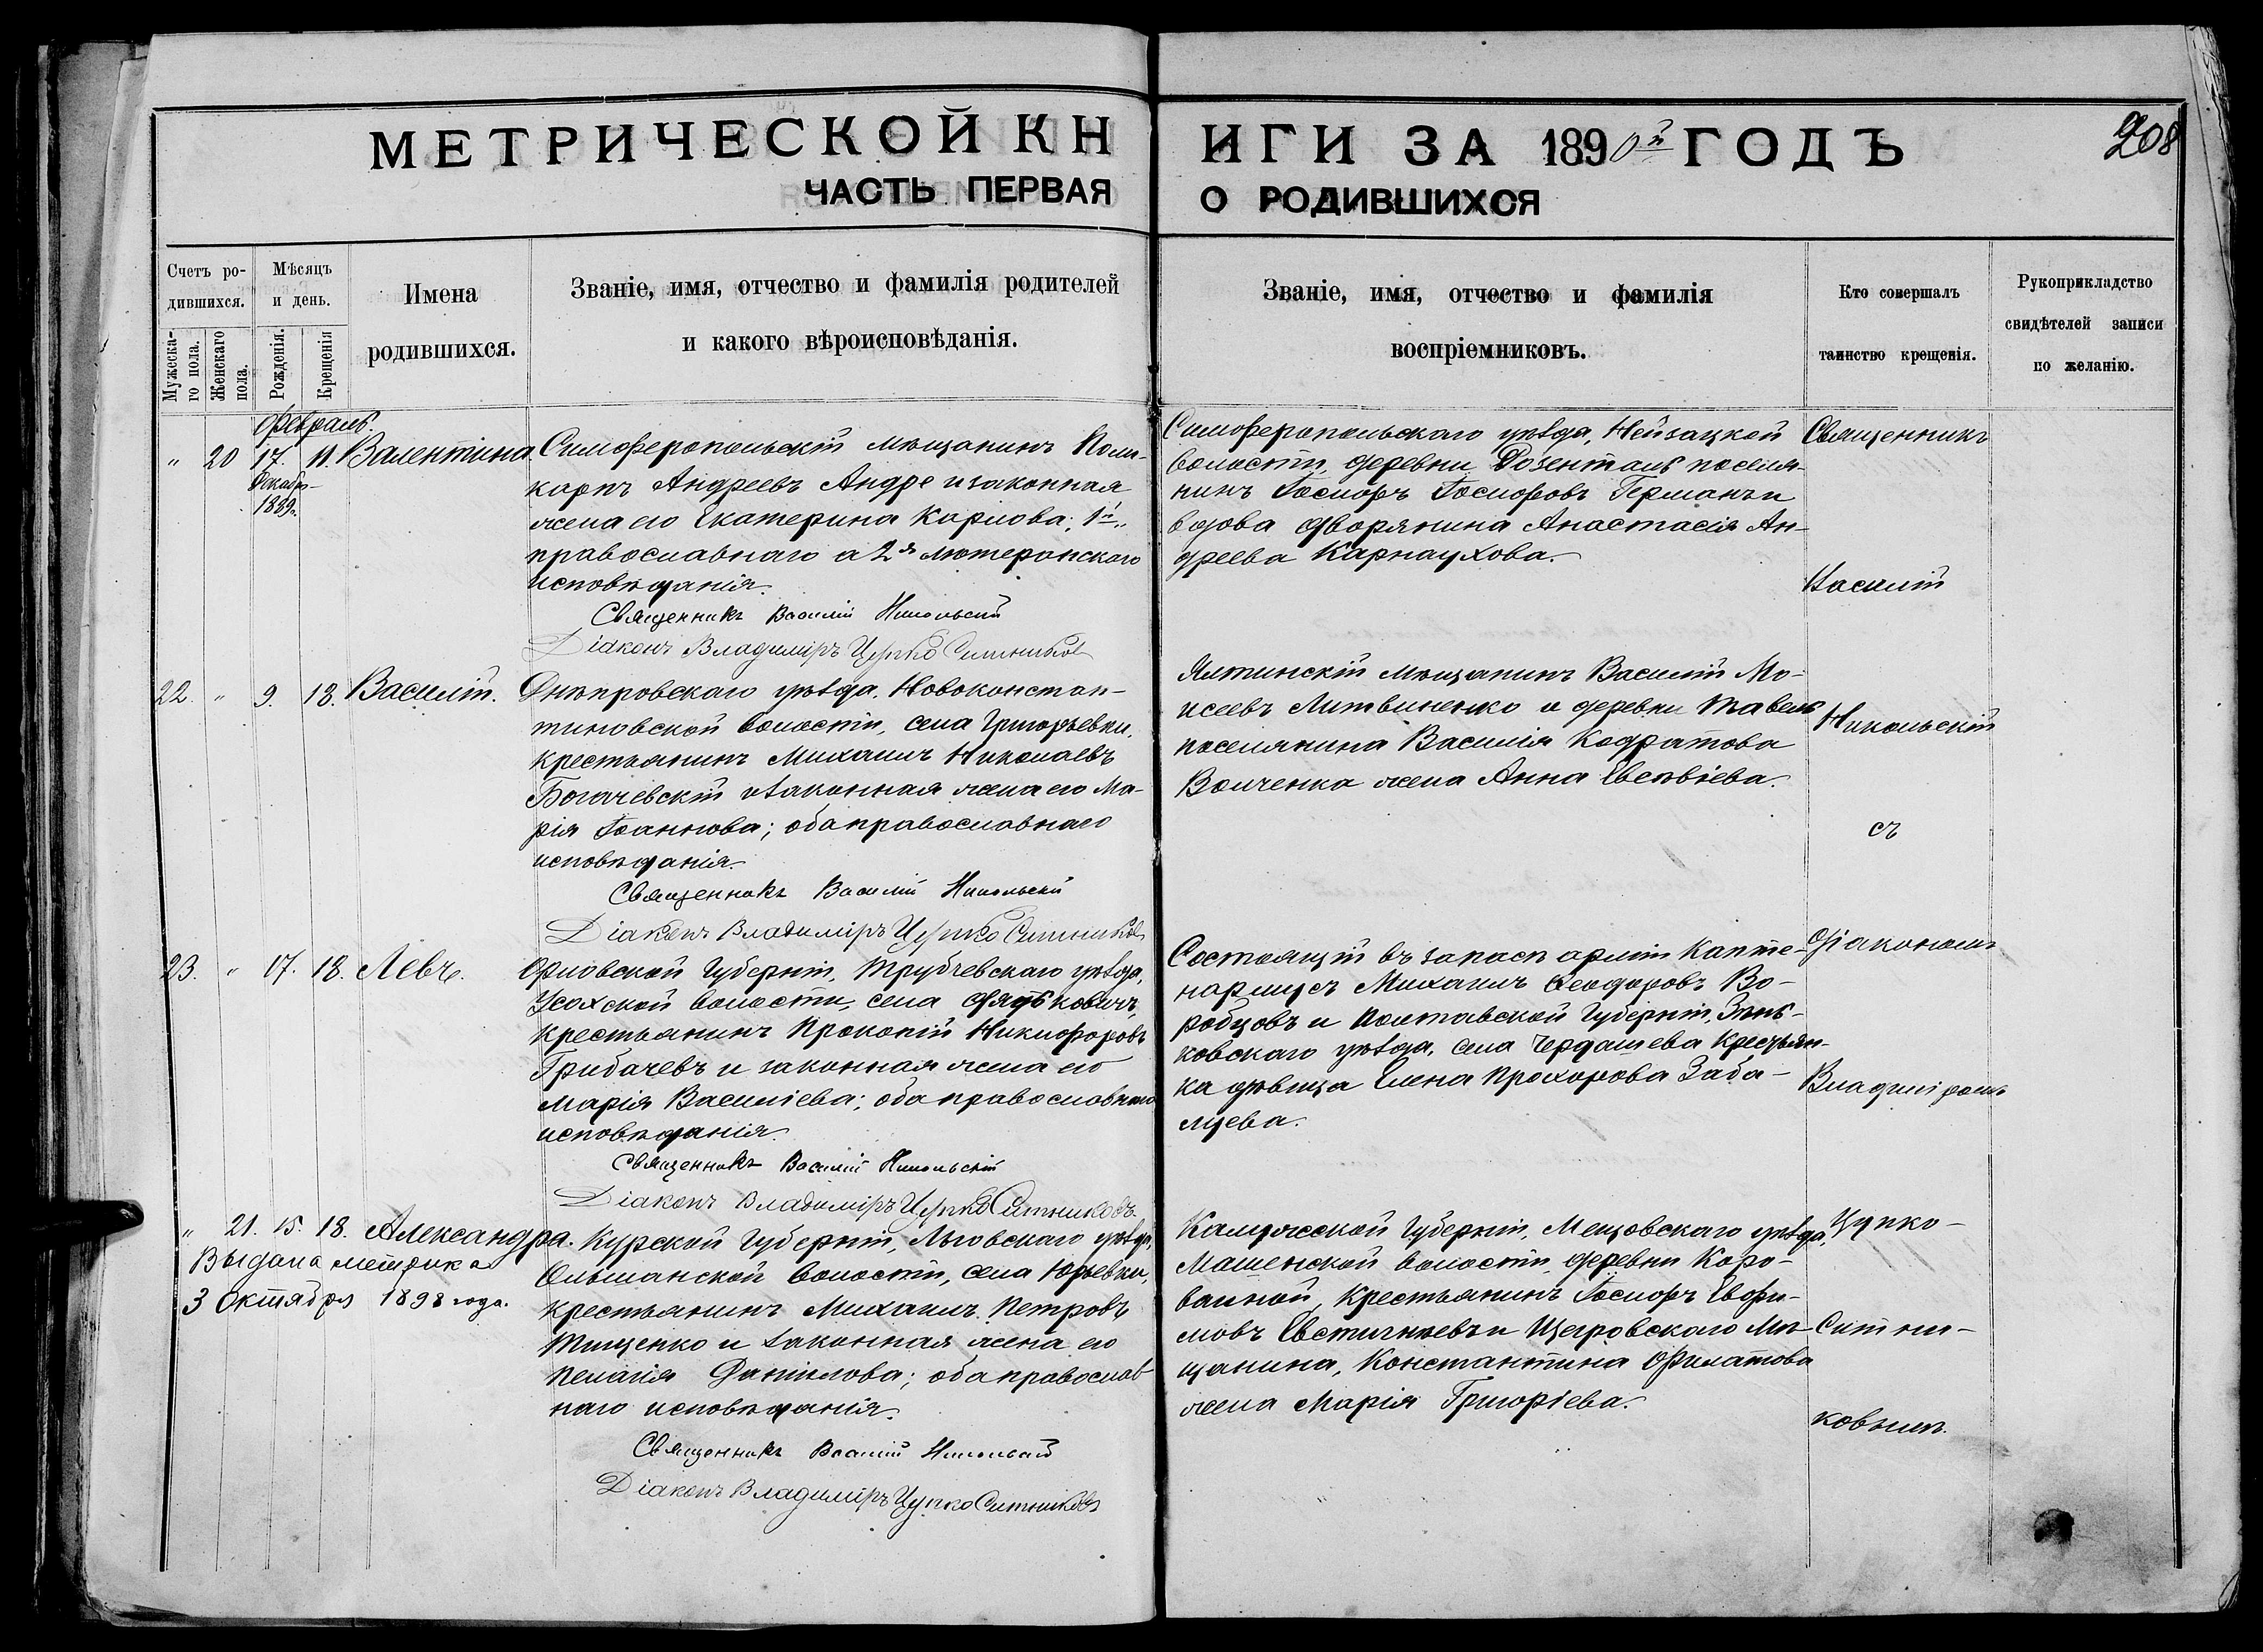 МЕТРИЧЕСКОЙ КНИГИ ЗА 1890й ГОДЪ
208
ЧАСТЬ ПЕРВАЯ О РОДИВШИХСЯ
Счетъ родившихся.
Мужескаго пола.
Женскаго пола.
Мѣсяцъ и день.
Рожденія.
Крещенія
Имена
родившихся.
Званіе, имя, отчество и фамилія родителей
и какого вѣроисповѣданія.
Званіе, имя, отчество и фамилія
воспріемниковъ.
Кто совершалъ
таинство крещенія.
Рукоприкладство
свидѣтелей записи
по желанію.
Февраль.
„ 20 17. 11. Валентина.
Декабр-
1889г.
Симферопольскій мѣщанинъ Поли-
карпъ Андреевъ Андре и законная
жена его Екатерина Карлова; 1й,
православнаго а 2я лютеранскаго
исповѣданія.
Священникъ Василій Никольскій
Діаконъ Владиміръ Цупко Ситниковъ
Симферопольскаго уѣзда, Нейзацкой
волости, деревни Розенталь поселя-
нинъ Іосифъ Іосифовъ Германъ и
вдова дворянина Анастасія Ан-
дреева Карнаухова.
22. „ 9. 18. Василій.
Днѣпровскаго уѣзда, Новоконстан-
тиновской волости, села Григорьевки,
крестьянинъ Михаилъ Николаевъ
Богачевскій и законная жена его Ма-
рія Іоаннова; оба православнаго
исповѣданія.
Священникъ Василій Никольскій
Діаконъ Владиміръ Цупко Ситниковъ
Ялтинскій мѣщанинъ Василій Мо-
исеевъ Литвиненко и деревни Тавель
поселянина Василія Кодратова
Волченка жена Анна Евсевіева.
23. „ 17. 18. Левъ.
Орловской Губерніи, Трубчевскаго уѣзда,
Усохской волости, села Дядьковичъ,
крестьянинъ Прокопій Никифоровъ
Грибачевъ и законная жена его
Марія Василіева; оба православнаго
исповѣданія.
Священникъ Василій Никольскій
Діаконъ Владиміръ Цупко Ситниковъ
Состоящій въ запасѣ арміи Капте-
нармусъ Михаилъ Ѳеодоровъ Во-
робцовъ и Полтавской Губерніи, Зѣнь-
ковскаго уѣзда, села Чердашева крестьян-
ка дѣвица Елена Прохорова Заба-
лцева.
„ 21. 15. 18. Александра.
Выдана метрика
3 Октября 1898 года.
Курской Губерніи, Льговскаго уѣзда,
Ольшанской волости, села Юрьевки,
крестьянинъ Михаилъ Петровъ
Тищенко и законная жена его
Пелагія Данілова; оба православ-
наго исповѣданія.
Священникъ Василій Никольскій
Діаконъ Владиміръ Цупко Ситниковъ
Калужской Губерніи, Мещовскаго уѣзда,
Мошенской волости, деревни Коро-
вайной, Крестьянинъ Іосифъ Евфи-
мовъ Евстигнѣевъ и Щегровскаго Мѣ-
щанина, Константина Филатова
жена Марія Григоріева.
Священникъ
Василій
Никольскій
съ
Діакономъ
Владиміромъ
Цупко-
Ситни-
ковымъ.